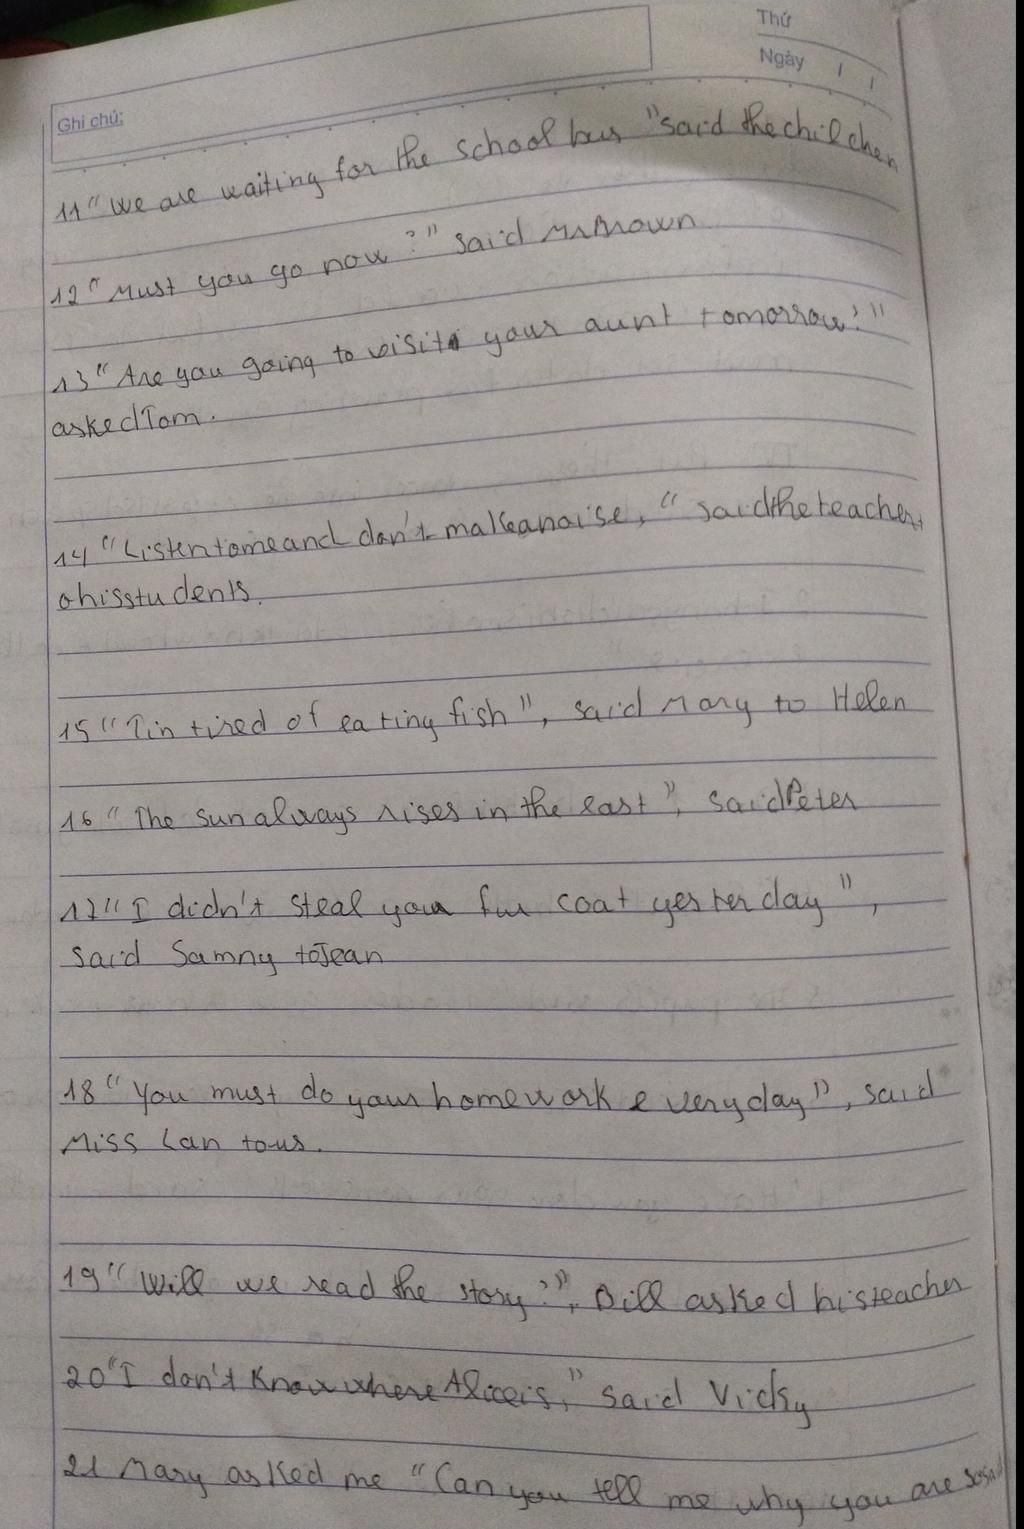 Thứ
Ngày / /
Ghi chú:
11 "We are waiting for the school bus "said the chilchen
12 "Must you go now?" said Mr Brown
13 "Are you going to visit your aunt tomorrow?"
asked Tom.
14 "Listen to me and don't make a noise, " said the teacher t
o his students.
15 "I'm tired of eating fish", said Mary to Helen
16 "The sun always rises in the east", said Peter
17 "I didn't steal your fur coat yesterday",
said Samny to Jean
18 "You must do your homework everyday", said
Miss Lan to us.
19 "Will we read the story?", Bill asked his teacher
20 "I don't know where Alice is," said Vicky
21 Mary asked me "Can you tell me why you are so sad